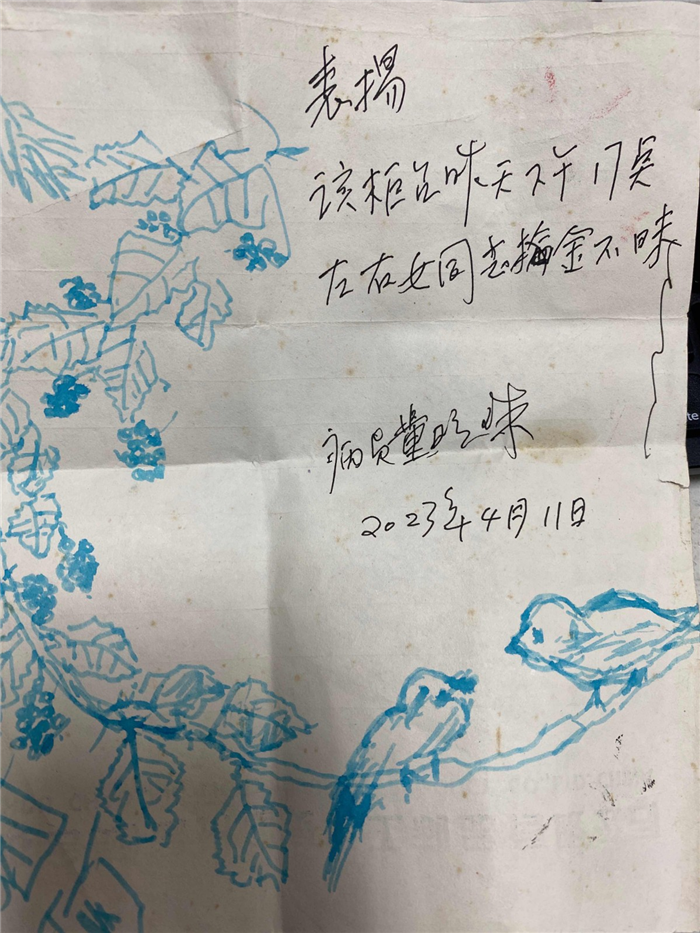 表扬
该柜台昨天下午17点
左右女同志拾金不昧
病员董珍珠
2023年4月11日